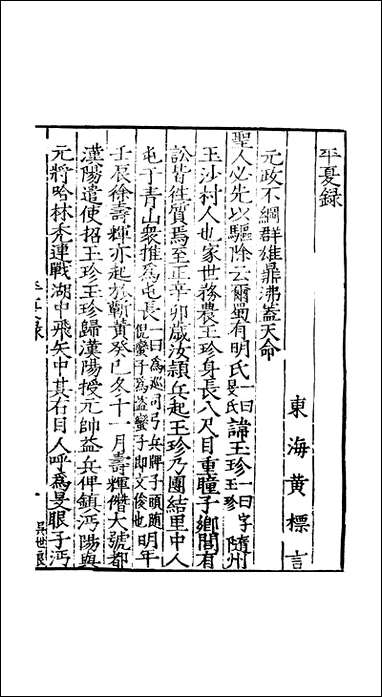 平夏録
東海黄標言
元政不綱群雄鼎沸蓋天命
聖人必先以驅除云爾蜀有明氏一曰旻氏諱玉珍一曰字玉珍隨州
玉沙村人也家世務農玉珍身長八尺目重瞳子鄉閭有
訟皆往質焉至正辛卯歲汝頴兵起玉珍乃團結里中人
屯于青山衆推為屯長一曰為巡司弓兵牌子頭隨倪蠻子為盗蠻子即文俊也明年
壬辰徐壽輝亦起於蘄黄癸巳冬十一月壽輝僭大號都
漢陽遣使招玉珍玉珍歸漢陽授元帥益兵俾鎮沔陽與
元將哈林秃連戰湖中飛矢中其右目人呼為旻眼子沔
平夏録
一